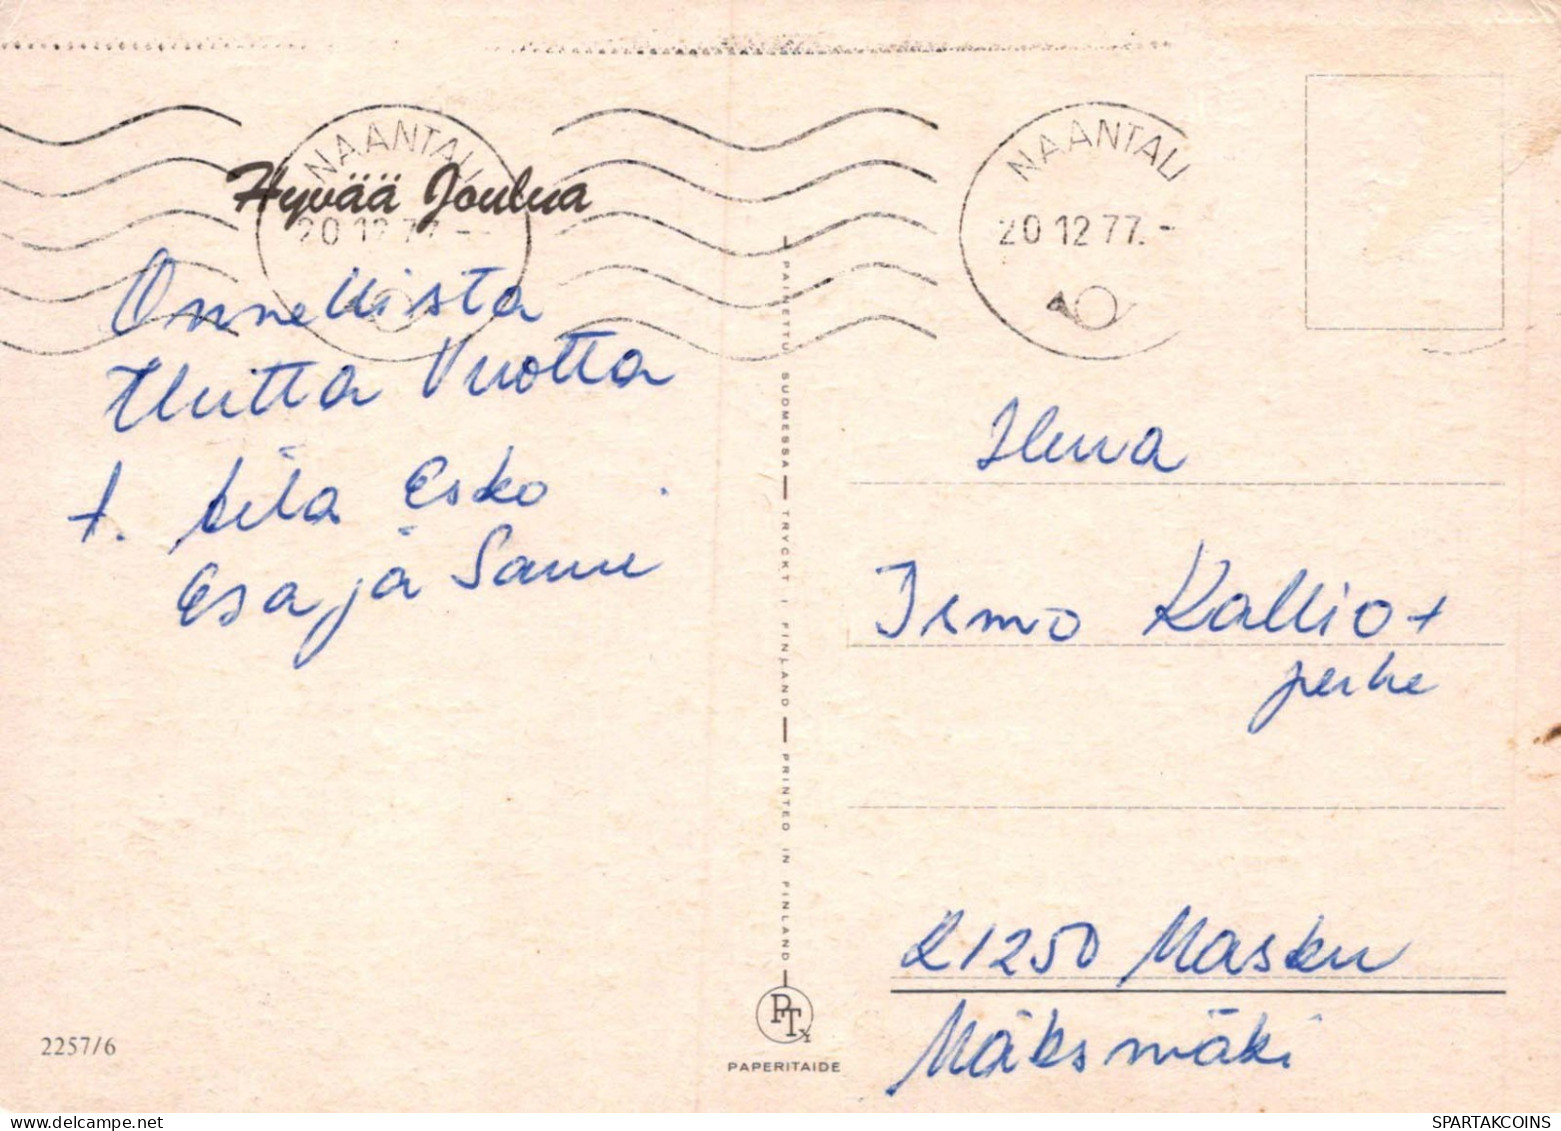 NAANTALI
20.12.77.-
Hyvää Joulua
Onnellista
Uutta Vuotta
t. Aila Esko
Esa ja Sami
NAANTALI
20.12.77.-
PAINETTU SUOMESSA — TRYCKT I FINLAND — PRINTED IN FINLAND
Ilma
Ismo Kallio+
perhe
21250 Masku
Mäksmäki
PT
PAPERITAIDE
2257/6
SPARTAKCOINS